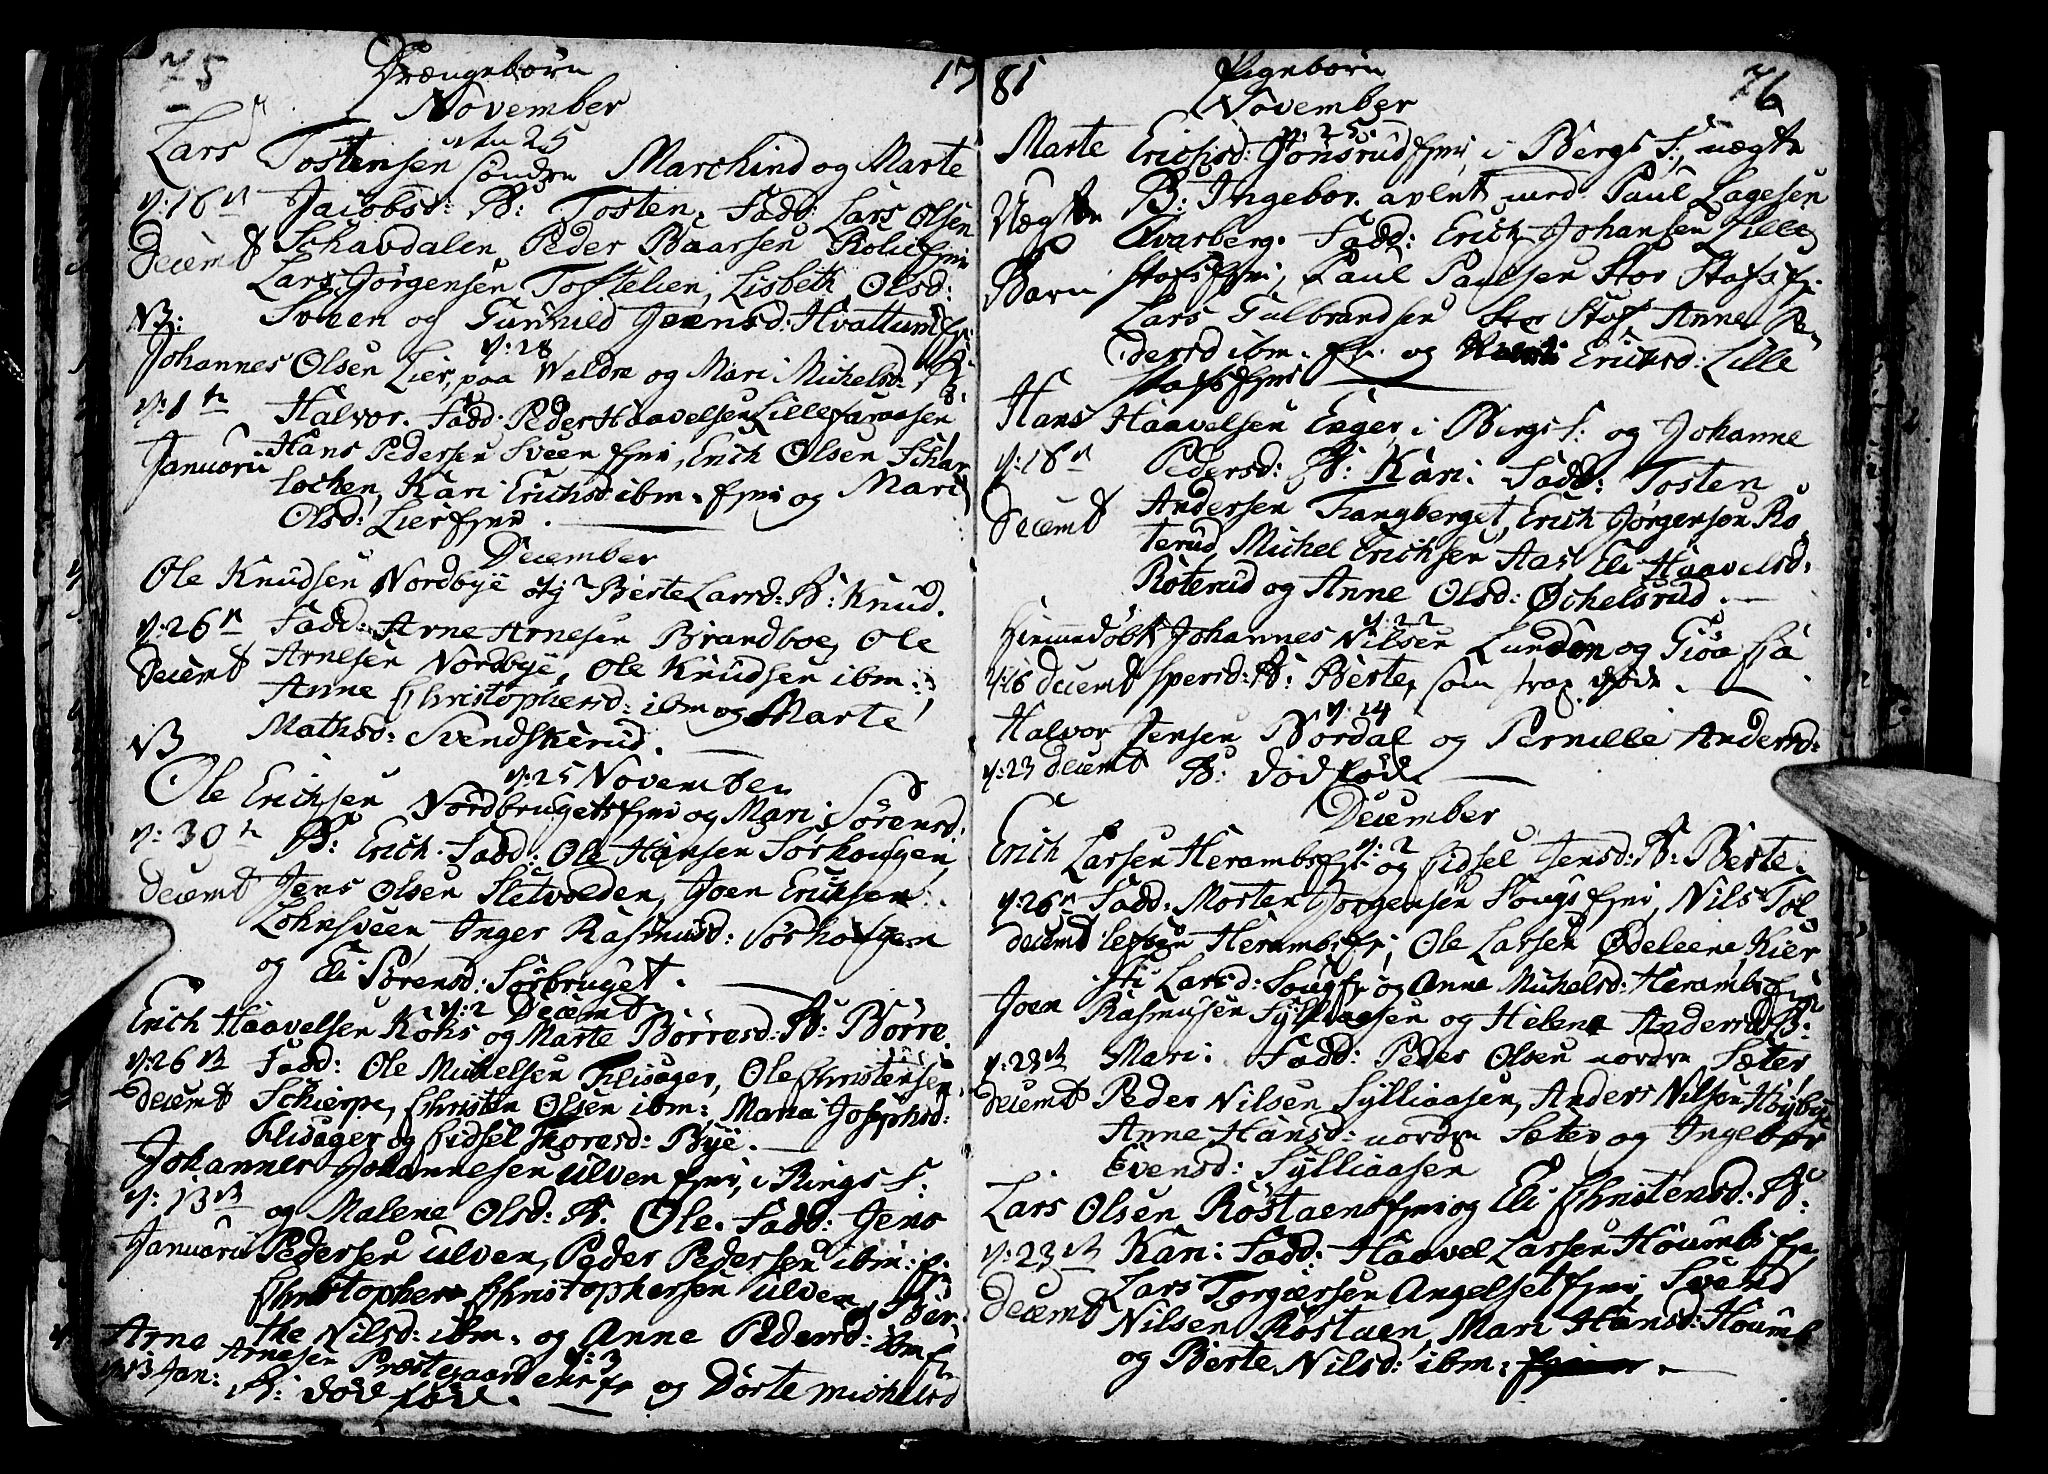 75 Drængebørn 17
November
Lars d: 25
Tostensen søndre Marchind og Marte
d: 16 Jacobsd: B: Tosten. Fadd: Lars Olsen
Decembr Schavdalen, Peder Baarsen Rolie
Lars Jørgensen Tostelien, Lisbeth Olsd:
NB: Sveen og Gunnild Joensd: Hvattum
d: 28
Johannes Olsen Lier, paa Waldre og Mari Michelsd: B:
d: 1te Halvor. Fadd: Peder Haavelsen Lille
Januarii Hans Pedersen Sveen eje, Erich Olsen Schar
lochen, Kari Erichsd ibm: eje og Mari
Olsd: Lier eje.
December
Ole Knudsen Nordbye og Berte Larsd: B: Knud.
d: 26 Fadd: Arne Arnesen Brandboe, Ole
Decembr Arnesen Nordbye, Ole Knudsen ibm:
Anne Christophersd: ibm og Marte
NB Mathsd: Svendskerud.
d: 25 November
Ole Erichsen Nordbrugets eje og Mari Sørensd:
d: 30 B: Erich. Fadd: Ole Hansen Sørhougen
Decembr Jens Olsen Sletvolden, Joen Erichsen
Lohnsveen, Inger Rasmusd: Sørhougen
og Eli Sørensd: Sørbruget.
d: 2 Decembr
Erich Haavelsen Kohs og Marte Børresd: B: Børre.
d: 26 Fadd: Ole Michelsen Flisager, Ole Christensen
Decembr Schierpe, Christen Olsen ibm: Maria Josephsd:
Flisager og Sidsel Thoresd: Bye.
Johannes Johannesen Ulven eje, i Rings S:
d: 13 og Malene Olsd: B: Ole. Fadd: Jens
Januarii Pedersen Ulven, Peder Pedersen ibm:
Christopher Christophersen Ulven, Ber
the Nilsd: ibm. og Anne Pedersd: ibm
Arne Arnesen Præstegaardens og Dorte Michelsd
d: 3
Jan: B: død fød.
81 Pigebørn 76
November
d: 25
Marte Erichsd: Gonsrud eje i Bergs S:, uægte
Uægte B: Ingebor. avlet med Paul Lagesen
Qvarberg. Fadd: Erich Johansen Lille
Barn Stafs eje, Paul Paulsen Stor Stafs
Lars Gulbrandsen Stor Stafs Anne Pe
dersd ibm. og Erichsd: Lille
Stafs eje
Hans Haavelsen Enger i Bergs S: og Johanne
d: 18 Pedersd: B: Kari. Fadd: Tosten
Decembr Andersen Frangberget, Erich Jørgensen Ro
terud, Michel Erichsen Aas, Eli Haavelsd:
Roterud og Anne Olsd: Øchelsrud.
d: 22
Hiemmedøbt Johannes Nilsen Lunden og Gioa Jia
d: 16 Decembr spersd: B: Berte, som strax døde.
d: 14
Halvor Jensen Nordal og Pernille Andersd:
d: 23 Decembr B: død fød.
December
d: 2
Erich Larsen Herambs og Sidsel Jensd: B: Berte.
d: 26 Fadd: Morten Jørgensen Sougs eje, Nils Tol
Decembr lefsen Herambs, Ole Larsen Ødeleene, Kier
sti Larsd: Soug og Anne Michelsd: Herambs
Joen Rasmusen Sylliaasen og Helene Andersd B:
d: 23 Mari. Fadd: Peder Olsen nordre Sæter,
Decembr Peder Nilsen Sylliaasen, Anders Nilsen Høybye
Anne Hansd: nordre Sæter og Ingebor
Evensd: Sylliaasen
Lars Olsen Røstaens eje og Eli Christensd: B:
d: 23 Kari. Fadd: Haavel Larsen Houmbs
Decembr Lars Torgiersen Angelset eje, Svend
Nilsen Røstaen, Mari Hansd: Houmb
og Berte Nilsd: ibm: